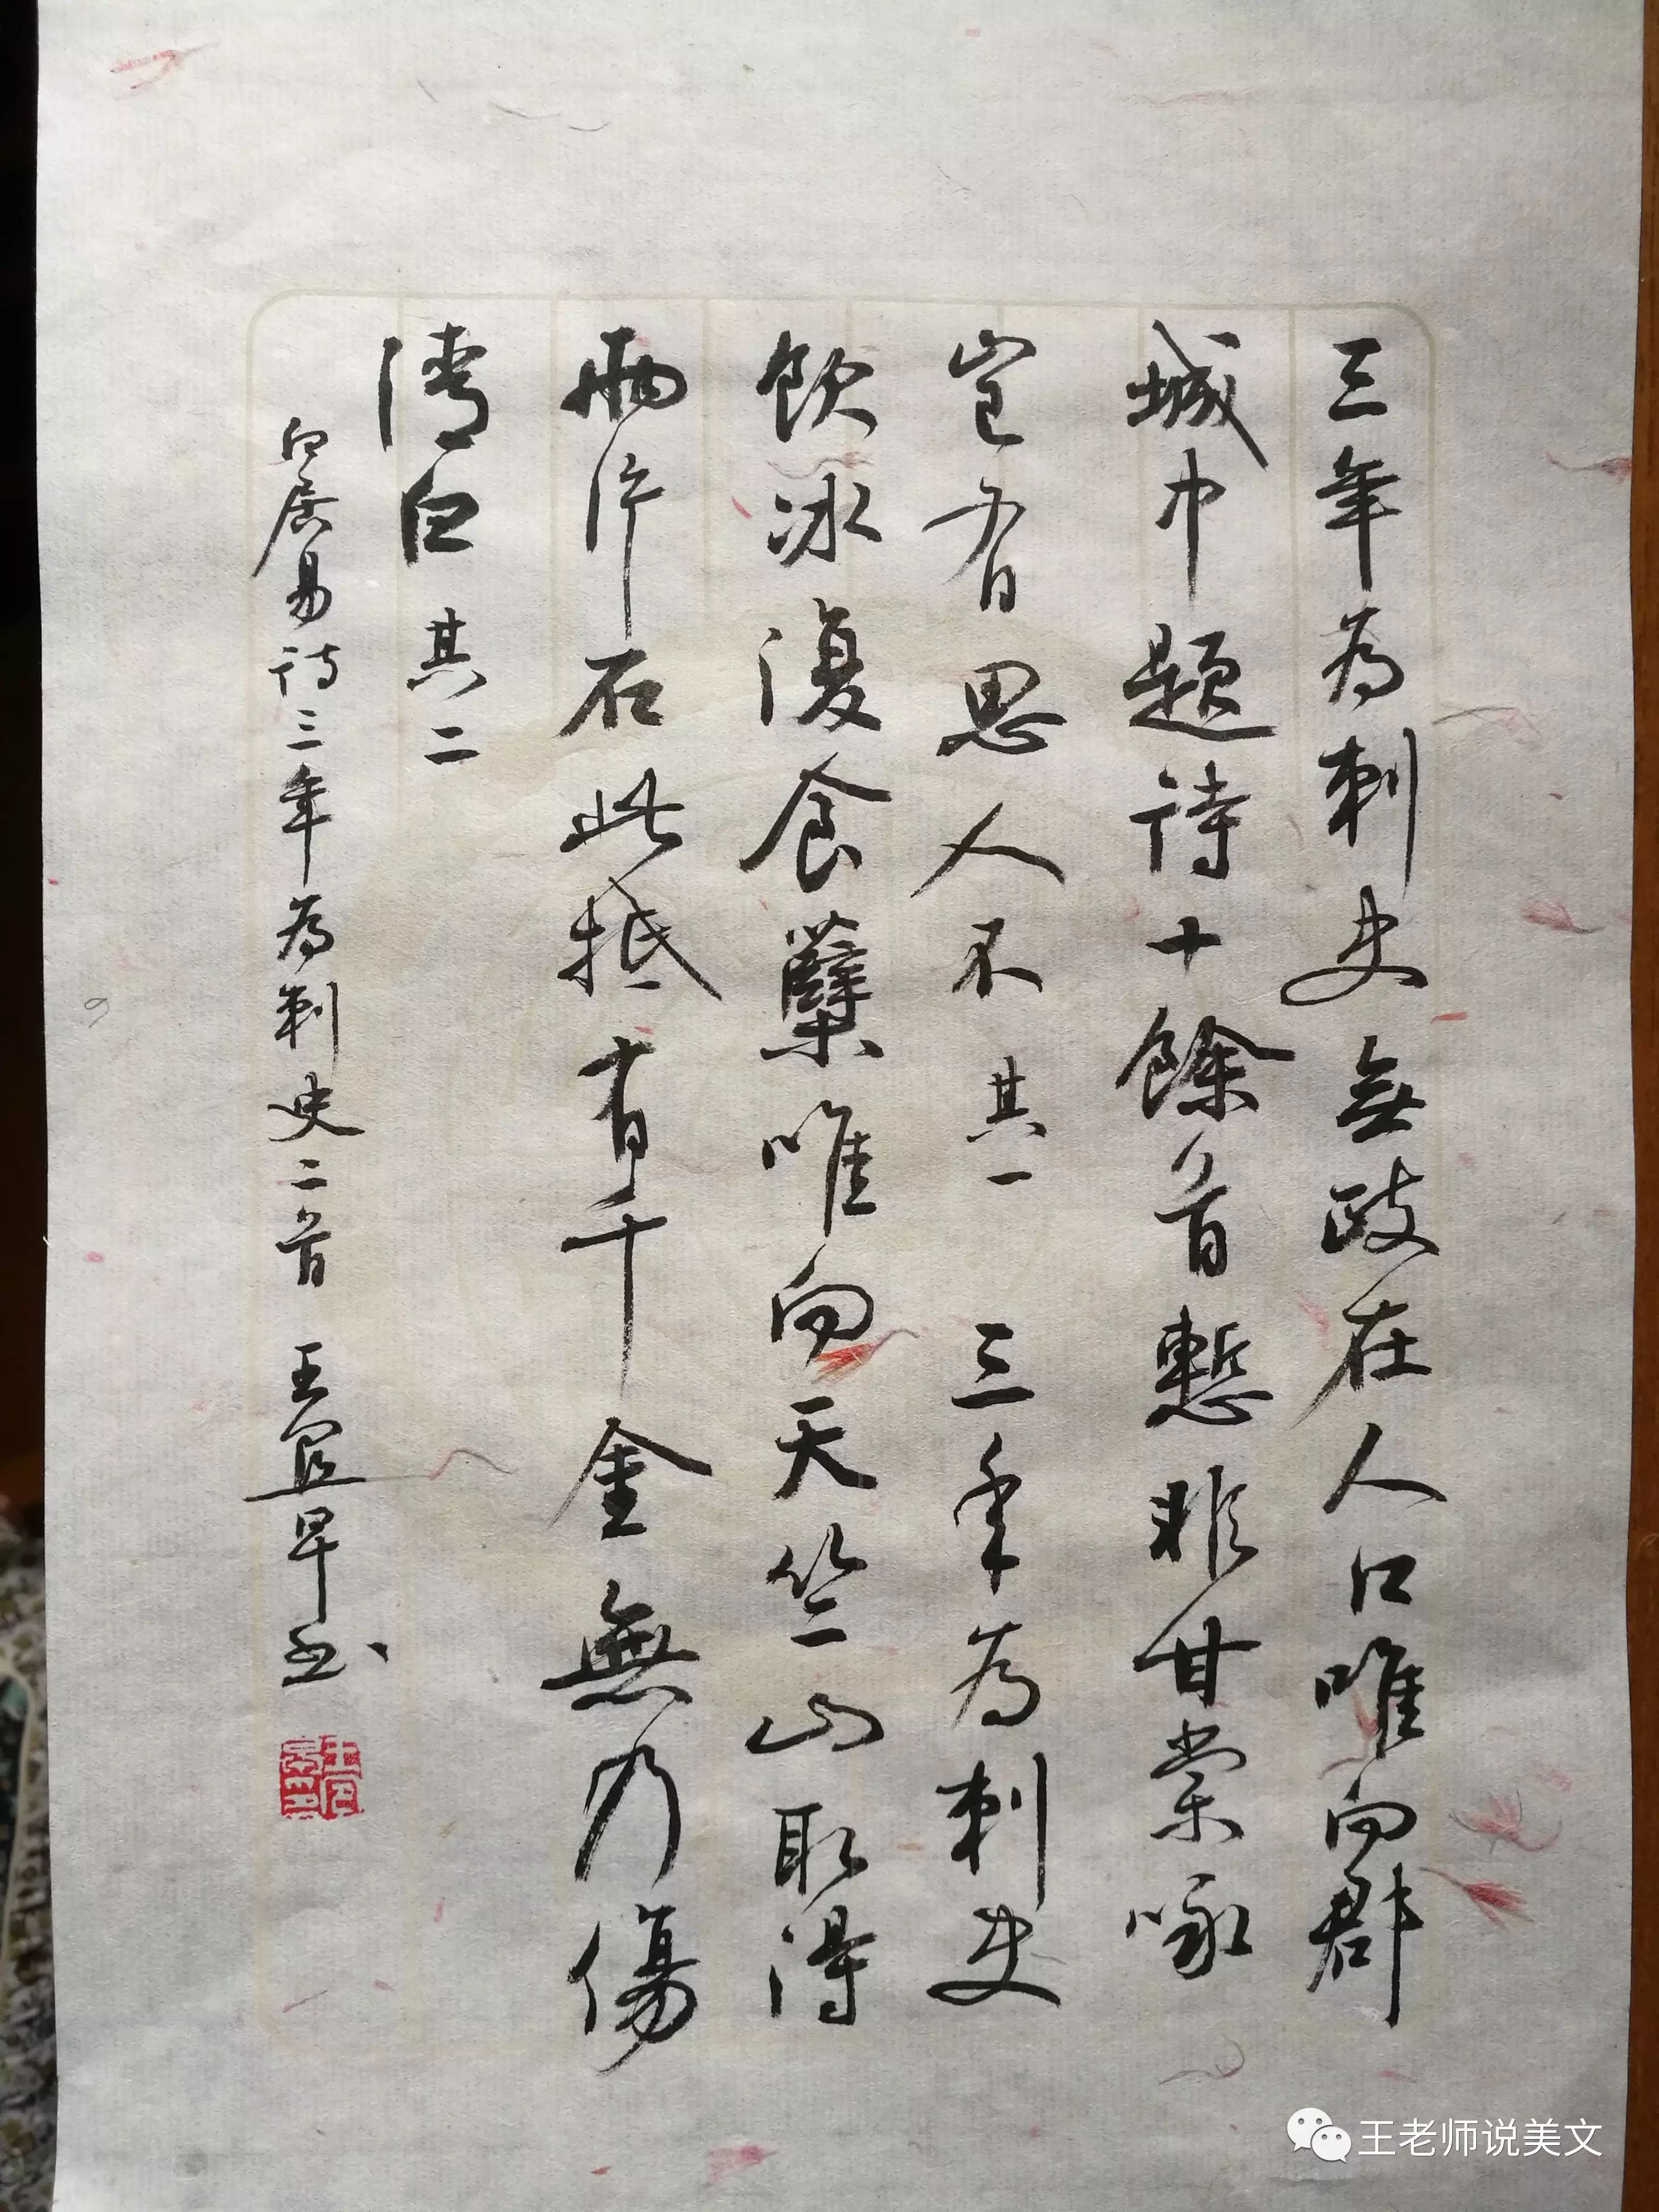 三年為刺史無政在人口唯向郡
城中題詩十餘首慙非甘棠詠
豈有思人不其一 三年為刺史
飲冰復食蘗唯向天竺山取得
兩片石此抵有千金無乃傷
清白其二
白居易詩三年為刺史二首 王宜早书
王老师说美文